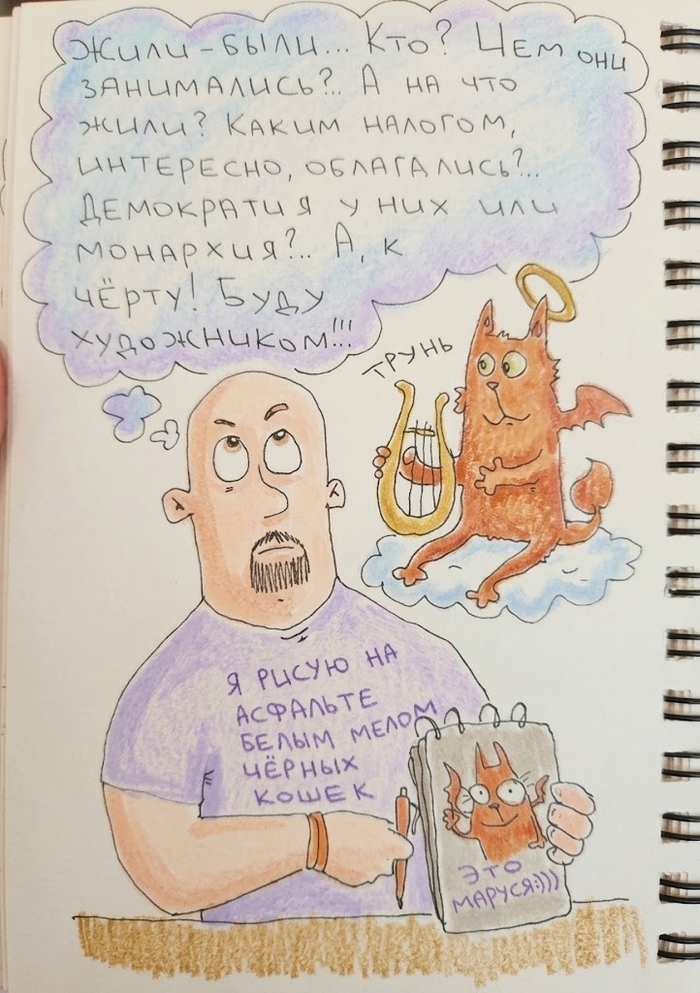 Жили-были... Кто? Чем они
занимались?.. А на что
жили? Каким налогом,
интересно, облагались?..
Демократия у них или
монархия?.. А, к
чёрту! Буду
художником!!!
трунь
Я рисую на
асфальте
белым мелом
чёрных
кошек
Это
Маруся:)))